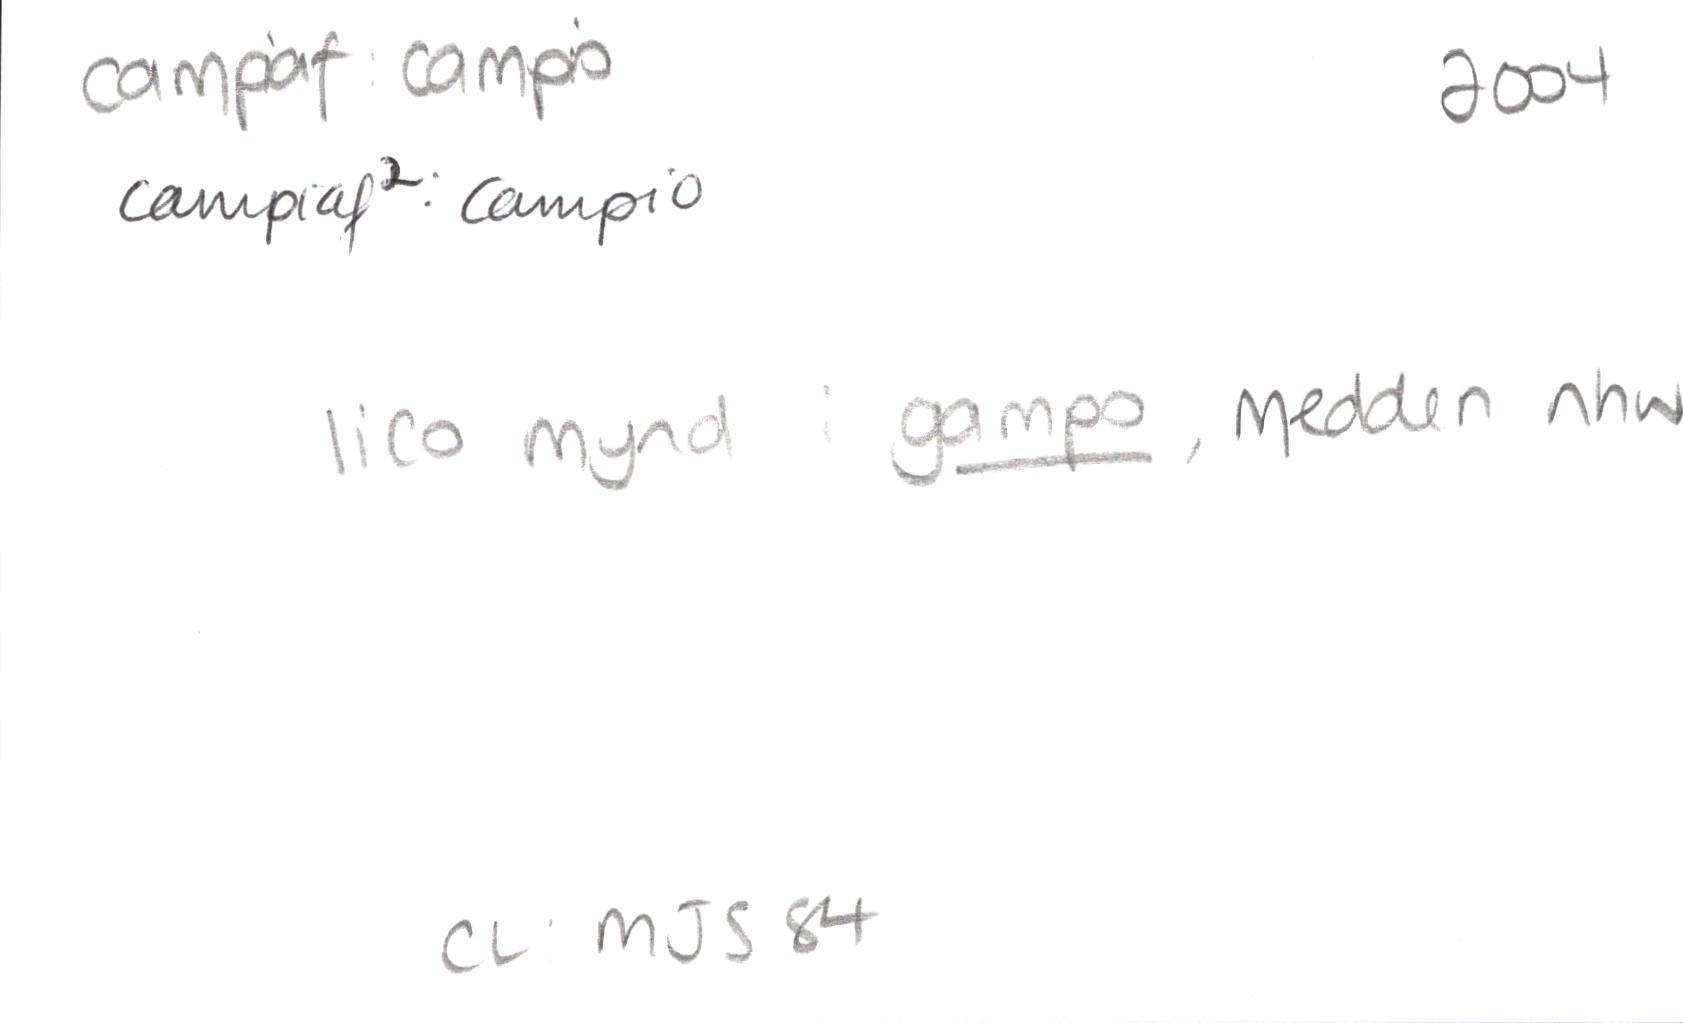 campiaf : campio 2004
campiaf²: campio
lico mynd i gampo, medden nhw
CL: MJS 84